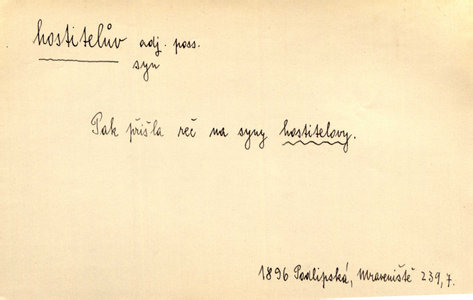 hostitelův adj. poss.
syn
Pak přišla řeč na syny hostitelovy.
1896 Podlipská, Mraveniště 239,7.